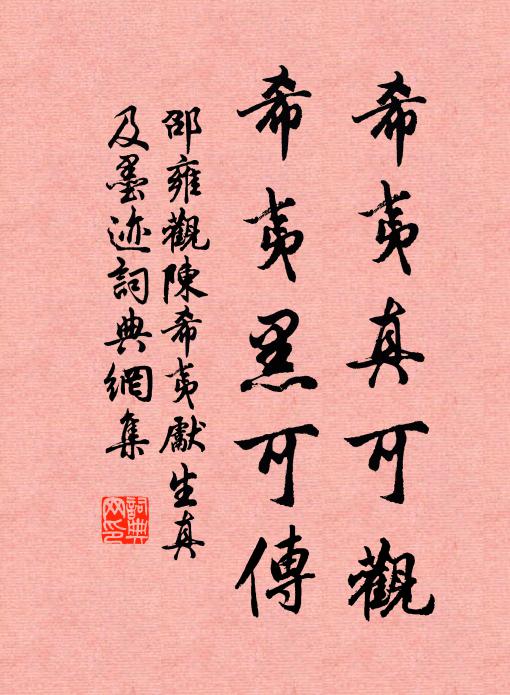 希夷真可觀
希夷黑可傳
邵雍觀陳希夷獻生真
及墨迹詞典網集
詞典网印